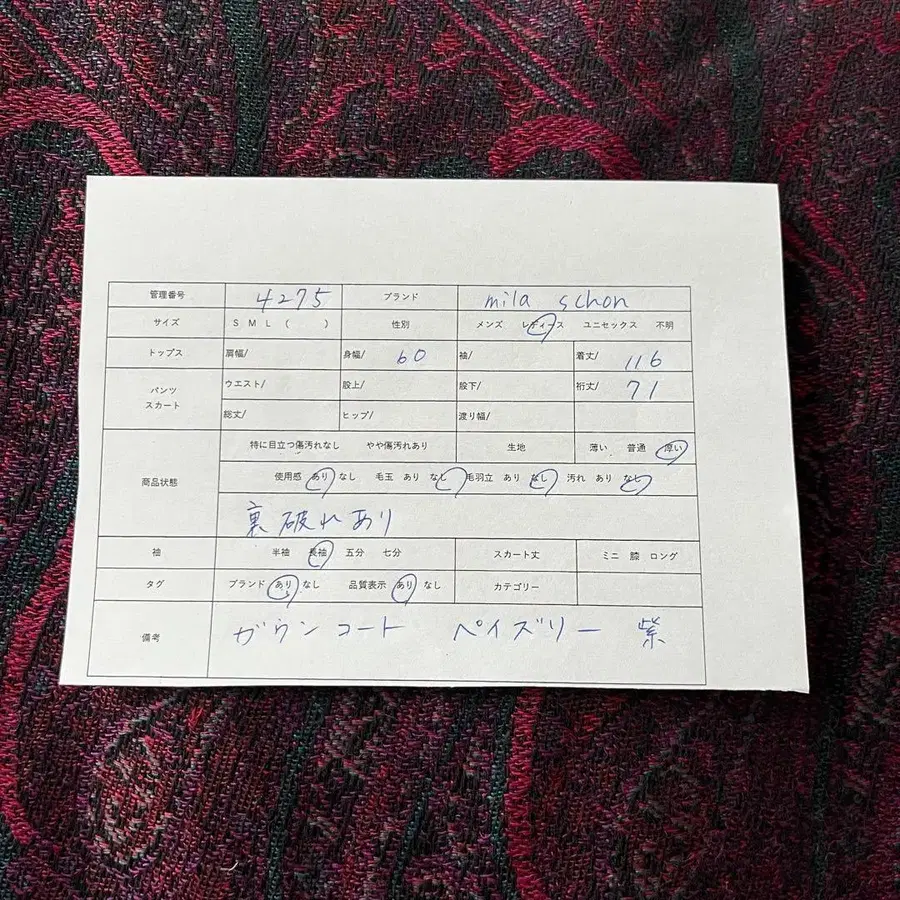 管理番号 4275 ブランド mila schon
サイズ S M L ( ) 性別 メンズ レディース ユニセックス 不明
トップス 肩幅/ 身幅/ 60 袖/ 着丈/ 116
パンツ スカート ウエスト/ 股上/ 股下/ 裄丈/ 71
総丈/ ヒップ/ 渡り幅/
商品状態 特に目立つ傷汚れなし やや傷汚れあり 生地 薄い 普通 厚い
使用感 あり なし 毛玉 あり なし 毛羽立 あり なし 汚れ あり なし
裏破れあり
袖 半袖 長袖 五分 七分 スカート丈 ミニ 膝 ロング
タグ ブランド あり なし 品質表示 あり なし カテゴリー
備考 ガウンコート ペイズリー 紫